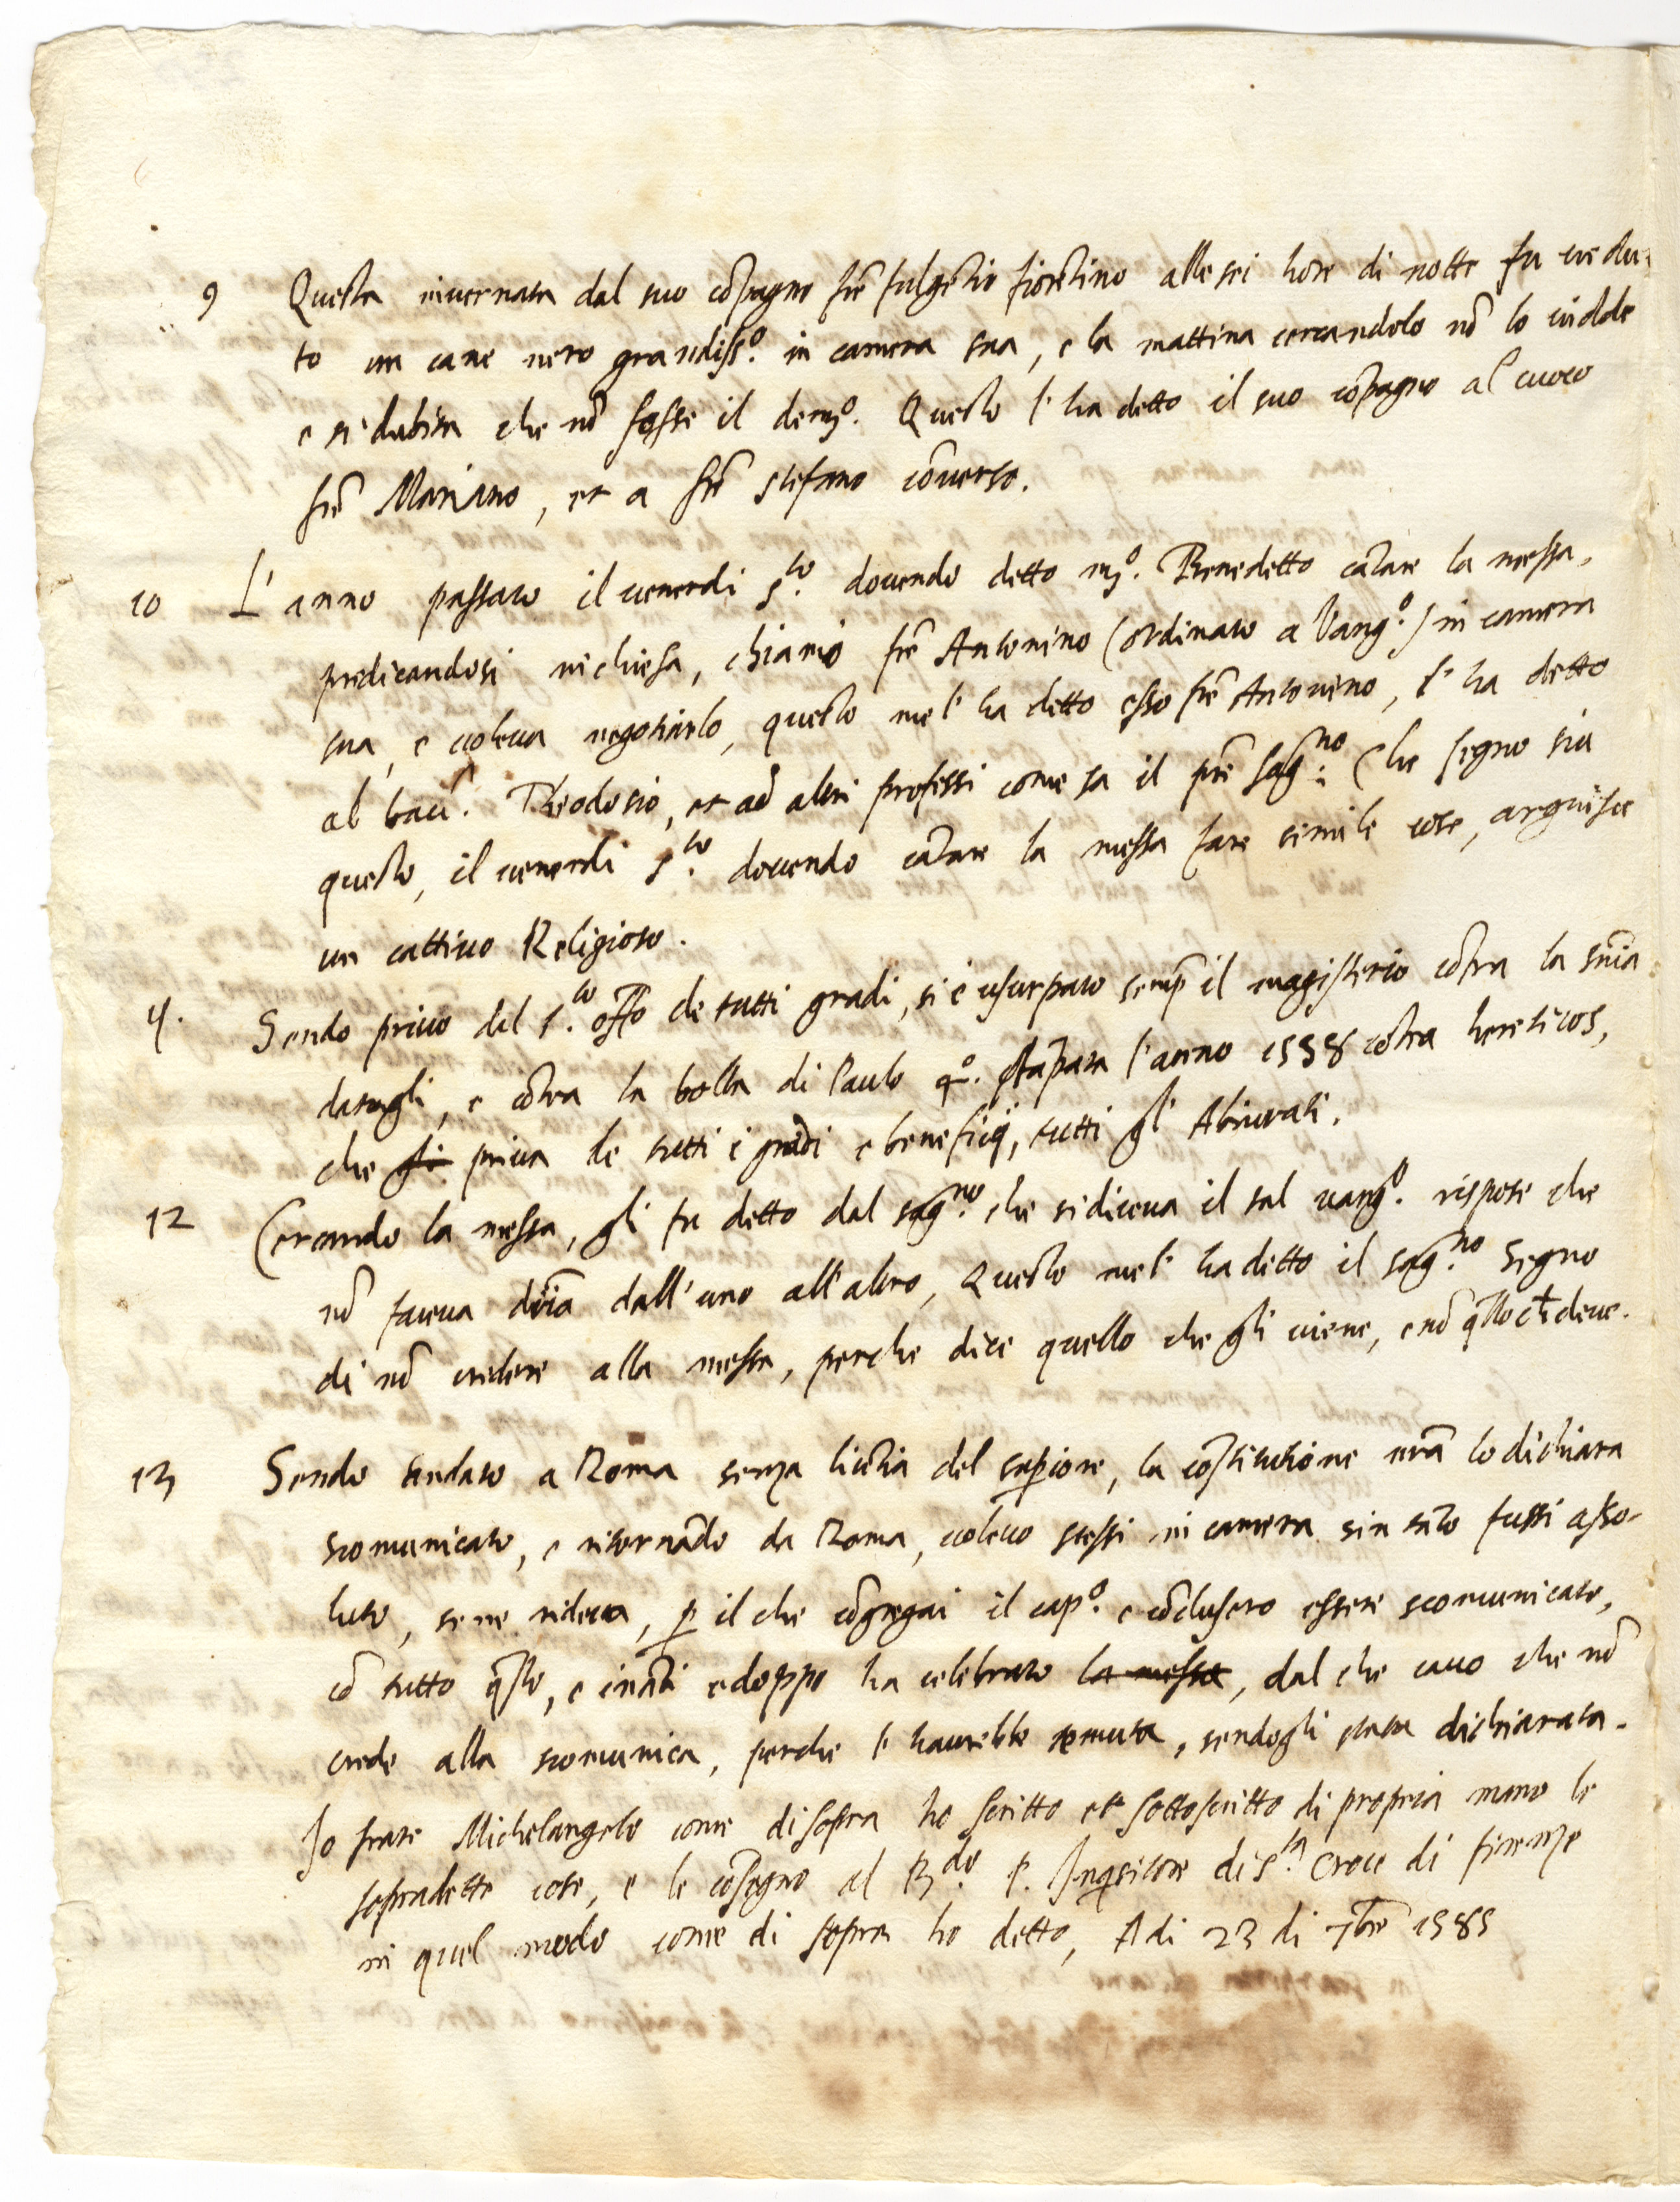 9 Questa invernata dal suo cõpagno frẽ fulgẽtio fiorẽtino alle sei hore di notte fu vedu-
to un cane nero grandiss.º in camera sua, e la mattina cercandolo nõ lo vidde
e si dubita che nõ fosse il dem.º Questo l'ha detto il suo cõpagno al cuoco
frẽ Mariano, et a frẽ stefano cõverso.
10 L'anno passato il venerdi s.to dovendo detto m.º Benedetto cãtare la messa,
predicandosi in chiesa, chiamò frẽ Antonino (ordinato a Vang.º) in camera
sua, e voleva negotiarlo, questo me l'ha detto esso frẽ Antonino, l'ha detto
al bacc. Theodosio, et ad altri professi come sa il prẽ sag.no Che segno sia
questo, il venerdi s.to dovendo cãtare la messa fare simile cose, arguisce
un cattivo Religioso.
11. Sendo privo del s.to offo de tutti gradi, si è usurpato semp il magisterio cõtra la snĩa
datagli, e cõtra la bolla di Paulo 4º. stãpata l'anno 1558 cõtra hereticos,
che gli priva de tutti i gradi e beneficij, tutti gl'Abiurati.
12 Cercando la messa, gli fu detto dal sag.no che si diceva il tal vang.º rispose che
nõ faceva dr̃ia dall'uno all'altro, Questo me l'ha detto il sag.no Segno
di nõ credere alla messa, perche dice quello che gli viene, e nõ q̃llo che deve.
13 Sendo andato a Roma senza licẽtia del sup̃iore, la cõstitutione nrã lo dichiara
scomunicato, e ritornãdo da Roma, volevo stessi in camera sin tãto fussi asso-
luto, se ne rideva, p il che cõgregai il cap.º e cõclusero essere scomunicato,
cõ tutto q̃sto, e inãti e doppo ha celebrato la messa, dal che cavo che nõ
crede alla scomunica, perche l'havrebbe temuta, sendogli stata dichiarata.
Io frate Michelangelo come di sopra ho scritto et sottoscritto di propria mano le
sopradette cose, e le cõsegno al R.do P. Inqsitore di S.ta Croce di firenze
in quel modo come di sopra ho detto, A di 23 di 7bre 1585